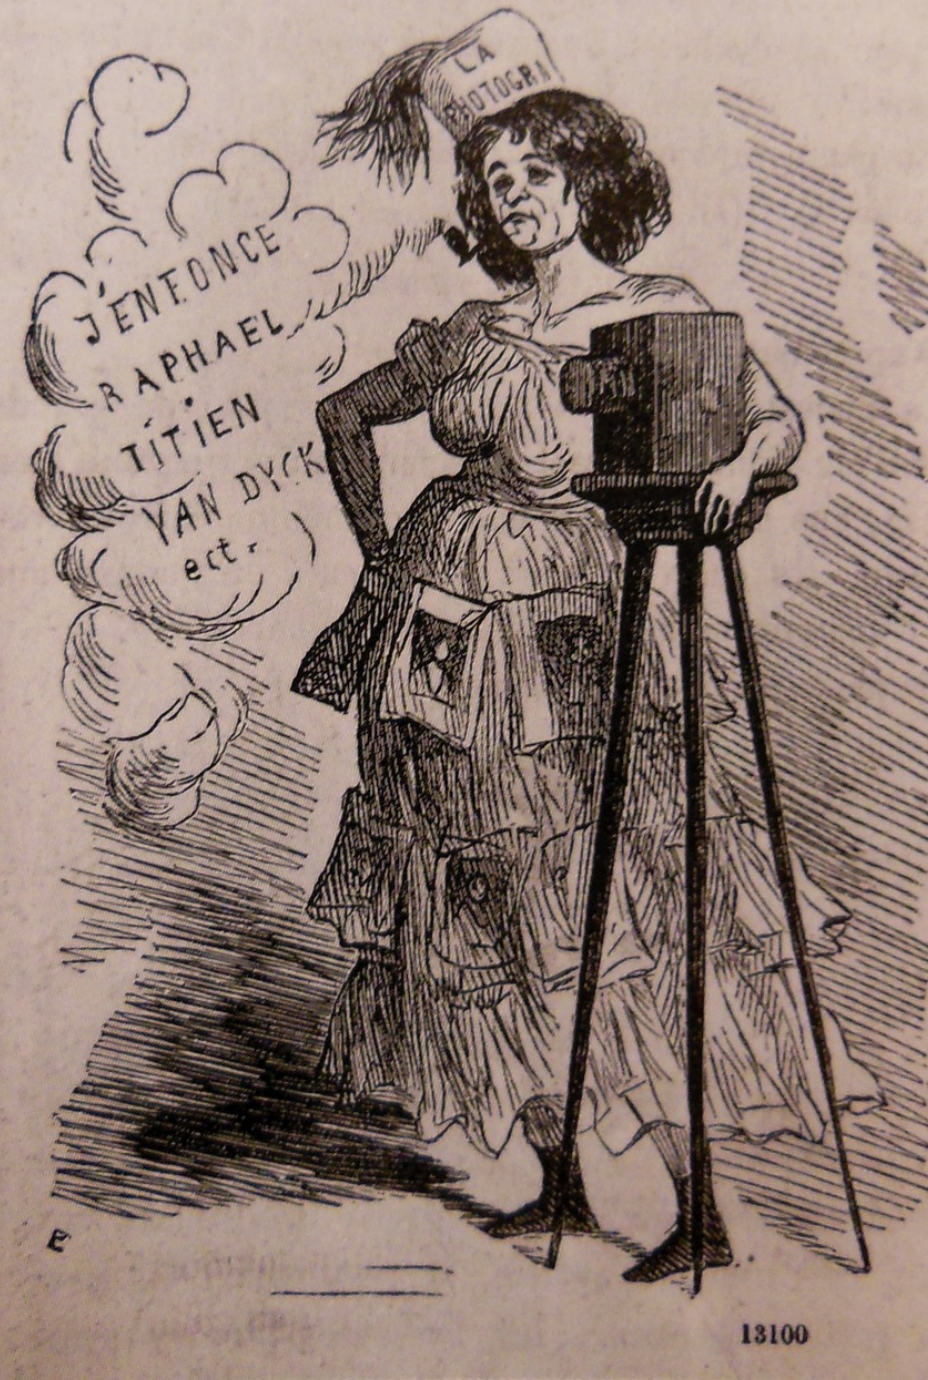 LA
PHOTOGRA
J'ENFONCE
RAPHAEL
TITIEN
VAN DYCK
ect.
E
13100